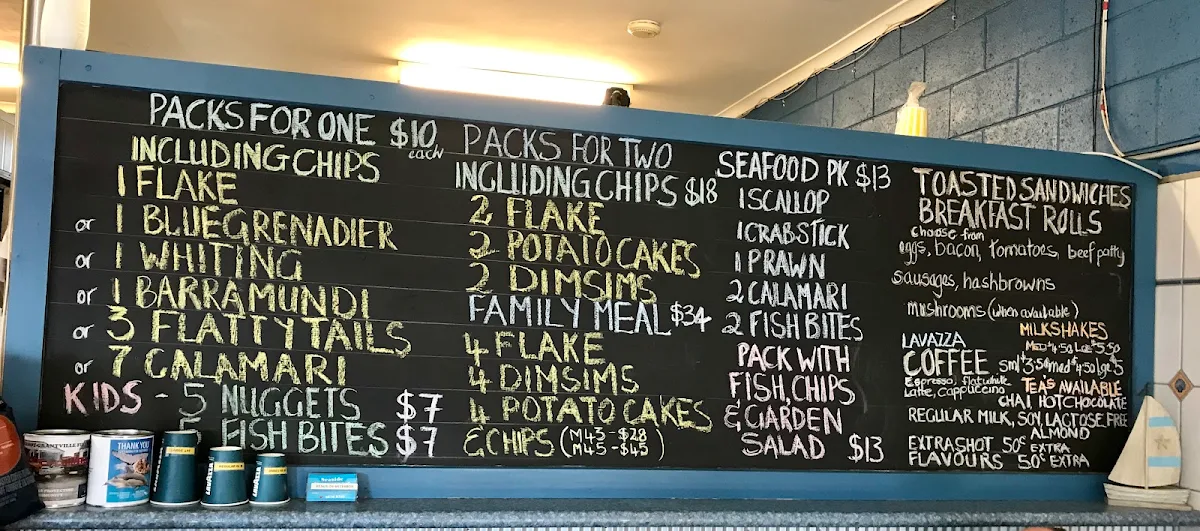 PACKS FOR ONE $10 each
INCLUDING CHIPS
1 FLAKE
or 1 BLUE GRENADIER
or 1 WHITING
or 1 BARRAMUNDI
or 3 FLATTY TAILS
or 7 CALAMARI
KIDS - 5 NUGGETS $7
5 FISH BITES $7
PACKS FOR TWO
INCLUDING CHIPS $18
2 FLAKE
2 POTATO CAKES
2 DIMSIMS
FAMILY MEAL $34
4 FLAKE
4 DIMSIMS
4 POTATO CAKES
& CHIPS
SEAFOOD PK $13
1 SCALLOP
1 CRABSTICK
1 PRAWN
2 CALAMARI
2 FISH BITES
PACK WITH
FISH, CHIPS
& GARDEN
SALAD $13
TOASTED SANDWICHES
BREAKFAST ROLLS
choose from
eggs, bacon, tomatoes, beef patty
sausages, hashbrowns
mushrooms (when available)
MILKSHAKES
Med $4.50 Lge $5.50
LAVAZZA
COFFEE sml $3.50 med $4.50 lge $5
Espresso, flat white
Latte, cappuccino
TEAS AVAILABLE
CHAI, HOT CHOCOLATE
REGULAR MILK, SOY, LACTOSE FREE
ALMOND
EXTRA SHOT 50¢ EXTRA
FLAVOURS 50¢ EXTRA
THANK YOU
LAVAZZA
LAVAZZA